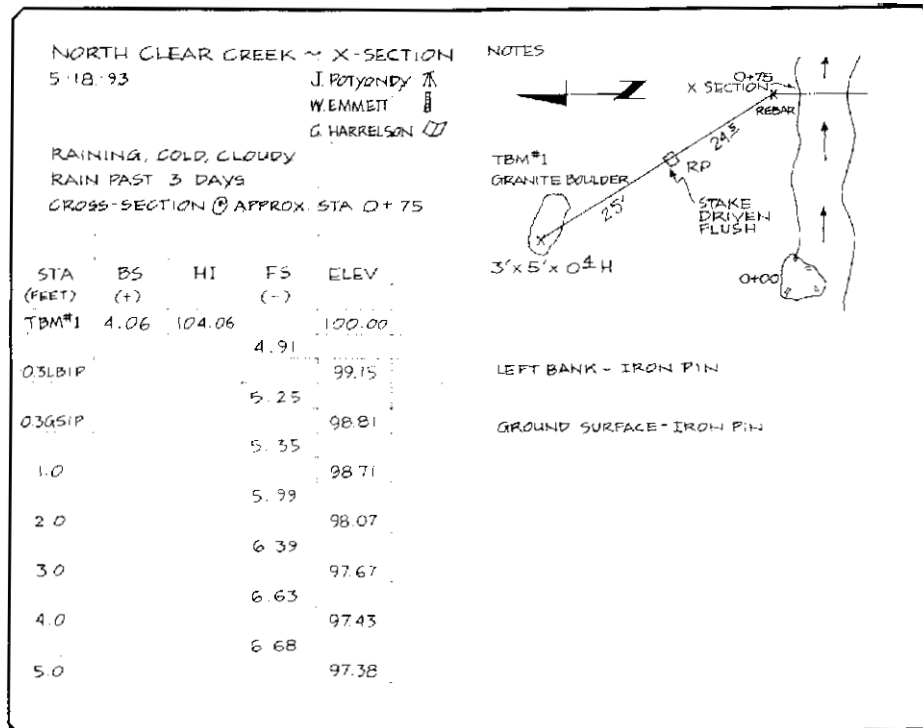 NORTH CLEAR CREEK ~ X-SECTION
5·18·93
J. POTYONDY
W. EMMETT
G. HARRELSON
RAINING, COLD, CLOUDY
RAIN PAST 3 DAYS
CROSS-SECTION @ APPROX. STA 0+75
STA BS HI FS ELEV
(FEET) (+) (-)
TBM#1 4.06 104.06 100.00
4.91
0.3LBIP 99.15
5.25
0.3GSIP 98.81
5.35
1.0 98.71
5.99
2.0 98.07
6.39
3.0 97.67
6.63
4.0 97.43
6.68
5.0 97.38
NOTES
0+75
X SECTION
REBAR
24.5
RP
TBM#1
GRANITE BOULDER
25'
STAKE
DRIVEN
FLUSH
3'x5'x0.4 H
0+00
LEFT BANK - IRON PIN
GROUND SURFACE - IRON PIN